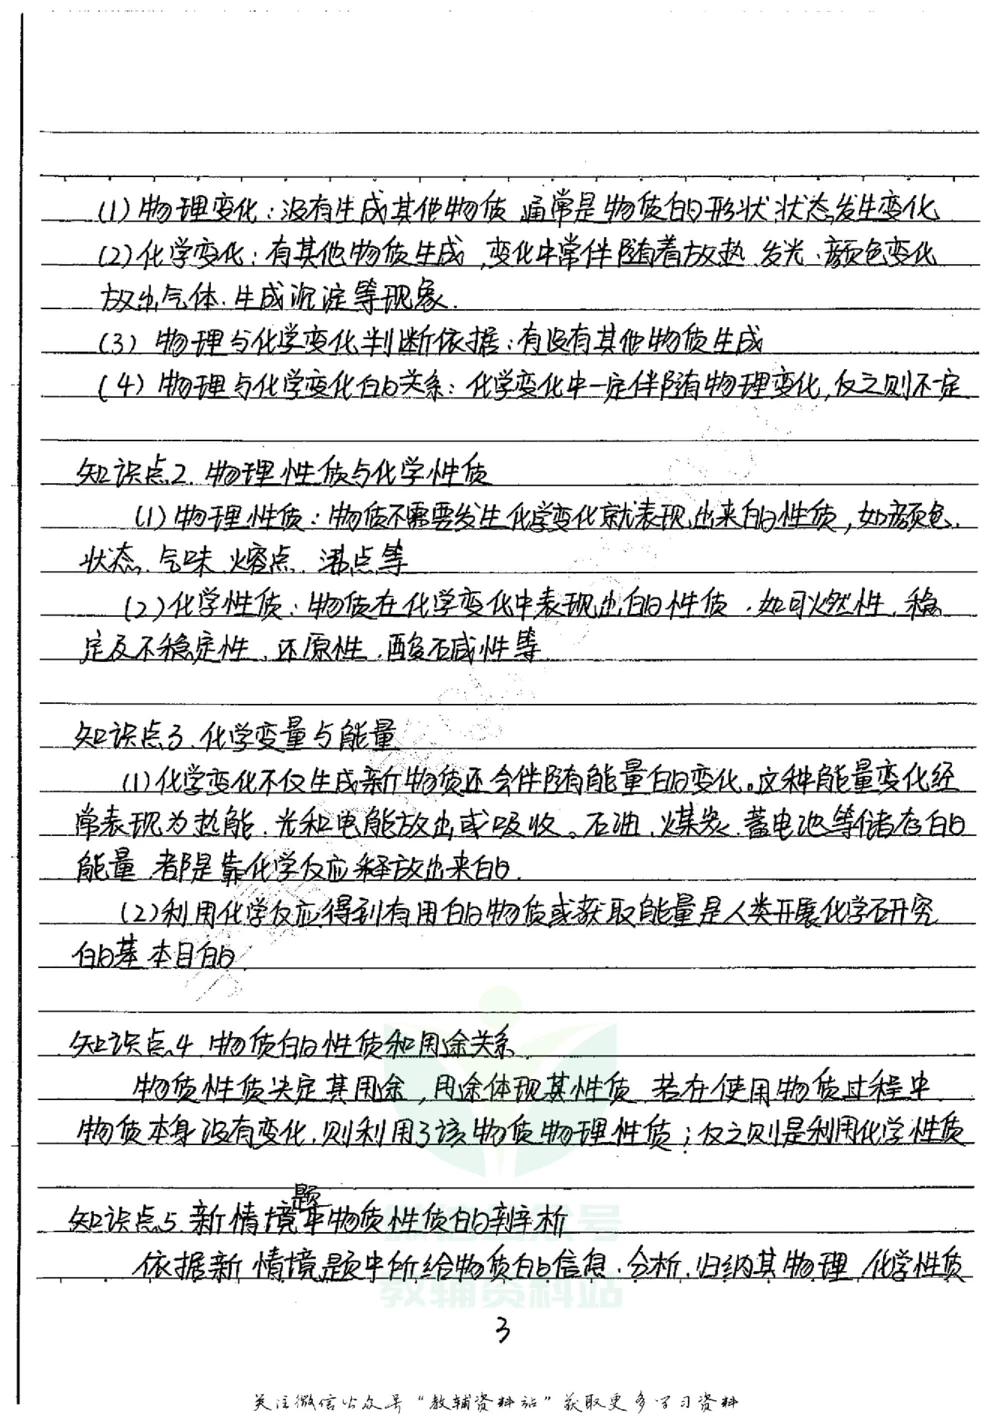 (1) 物理变化：没有生成其他物质 通常是物质的形状、状态发生变化
(2) 化学变化：有其他物质生成，变化中常伴随着放热、发光、颜色变化
放出气体、生成沉淀等现象.
(3) 物理与化学变化判断依据：有没有其他物质生成
(4) 物理与化学变化的关系：化学变化中一定伴随有物理变化,反之则不一定
知识点2. 物理性质与化学性质
(1) 物理性质：物质不需要发生化学变化就表现出来的性质，如颜色、
状态、气味、熔点、沸点等
(2) 化学性质：物质在化学变化中表现出的性质，如可燃性、稳
定及不稳定性、还原性、酸石咸性等
知识点3. 化学变量与能量
(1) 化学变化不仅生成新物质还会伴随有能量的变化。这种能量变化经
常表现为热能、光和电能放出或吸收。石油、煤炭、蓄电池等储存的
能量,都是靠化学反应释放出来的.
(2) 利用化学反应得到有用的物质或获取能量是人类开展化学研究
的基本目的.
知识点4. 物质的性质和用途关系.
物质性质决定其用途，用途体现其性质 若在使用物质过程中
物质本身没有变化,则利用了该物质物理性质；反之则是利用化学性质
知识点5. 新情境题中物质性质的辨析
依据新情境题中所给物质的信息、分析、归纳其物理、化学性质
教辅资料站
3
关注微信公众号"教辅资料站"获取更多学习资料